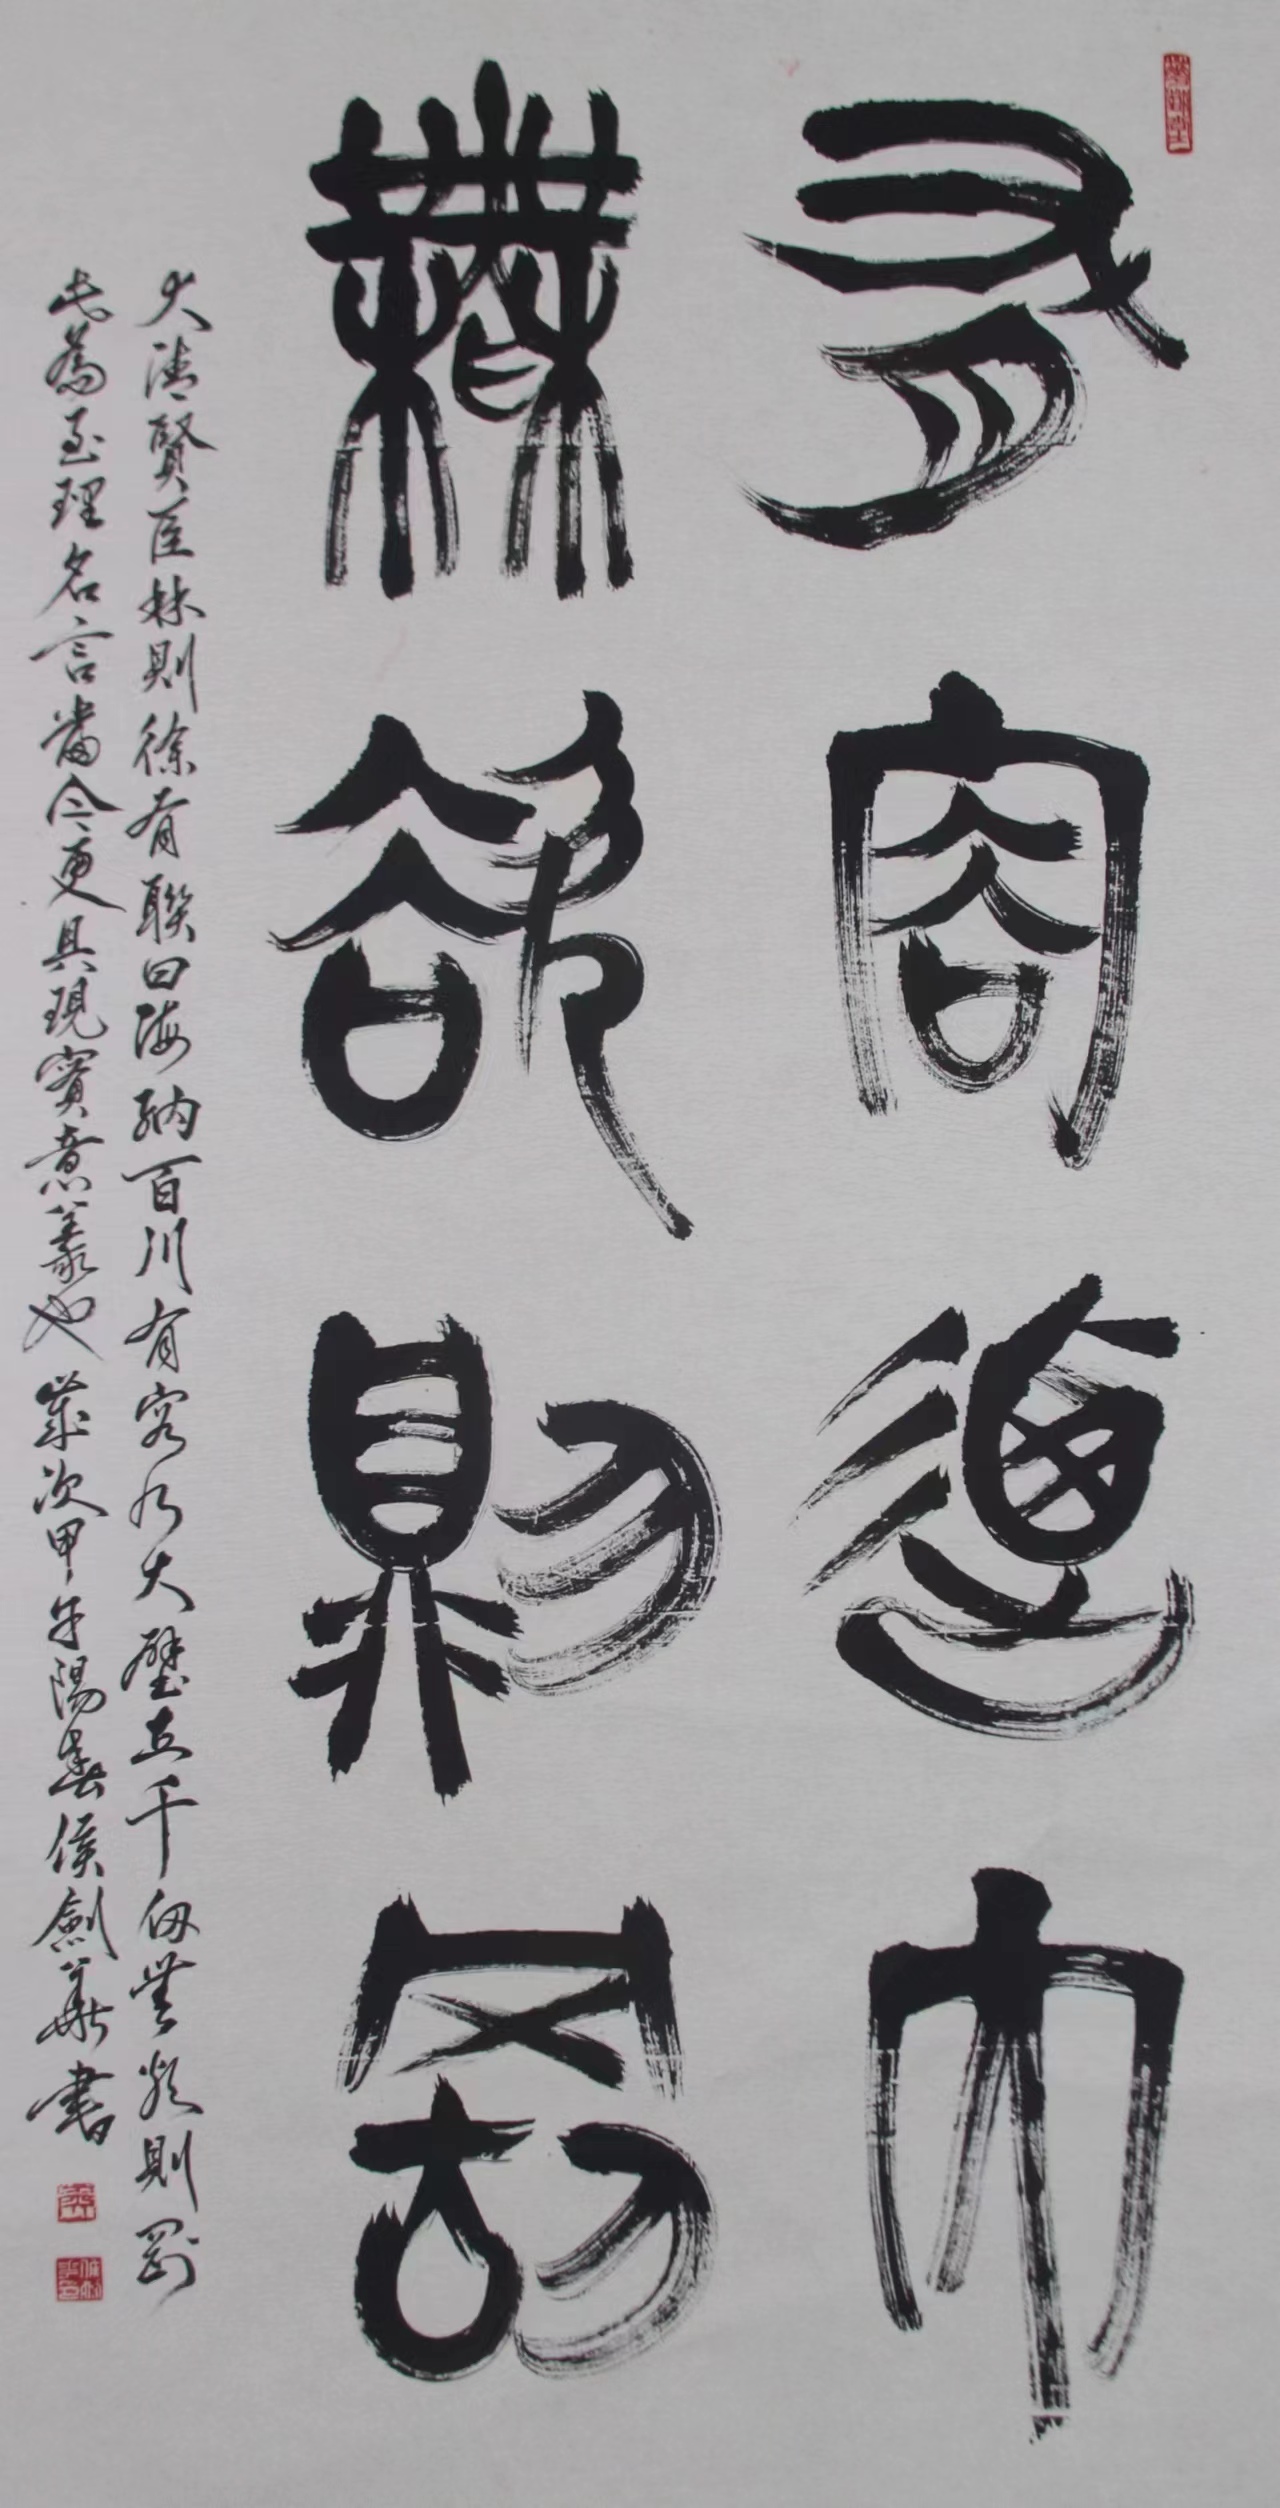 有容迺大
無欲則剛
大清賢臣林則徐有聯曰海納百川有容乃大壁立千仞無欲則剛
此為至理名言當今更具現實意義也歲次甲午陽春侯劍華書